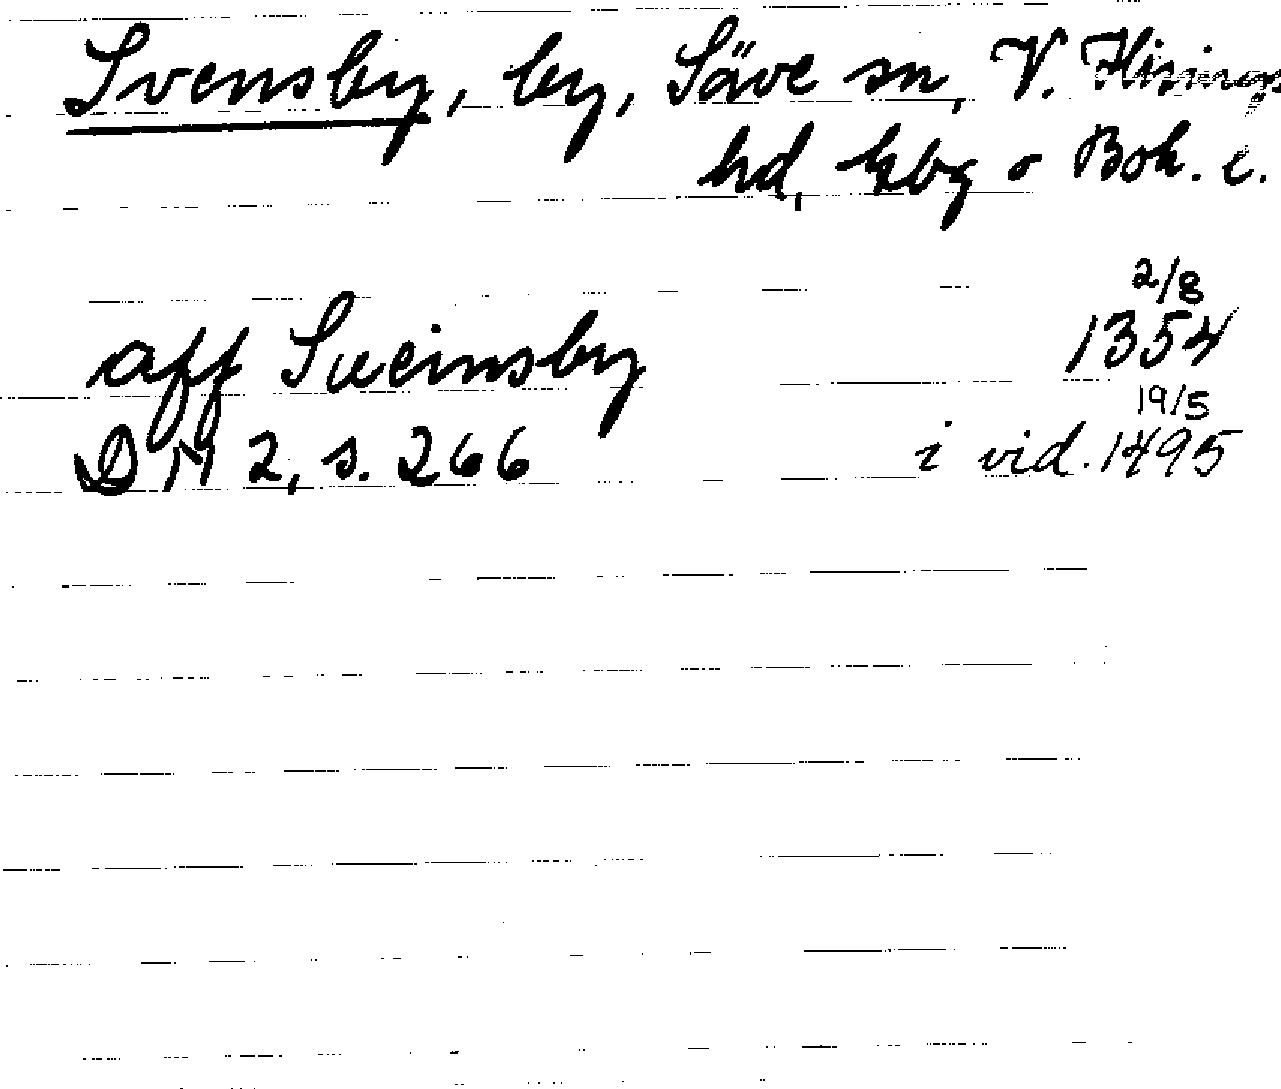 Svensby, by, Säve sn, V. Hisings
hd, Gbg o Boh. l.
2/8
aff Sueinsby 1354
19/5
DN 2, s. 266 i vid. 1495